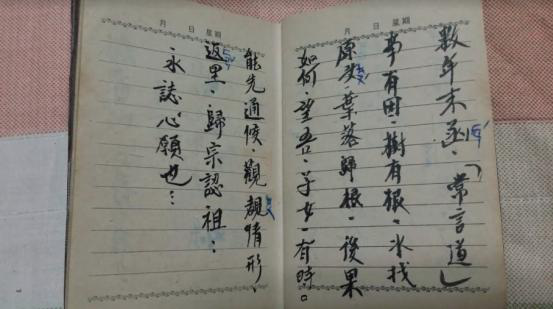 月 日 星期
數年末函．「常言道」
事有因．樹有根．水找
原头．葉落歸根．後果
如何．望吾．子女．有時。
月 日 星期
能先通候．觀情形．
返里．歸宗認祖：
永誌心願也…